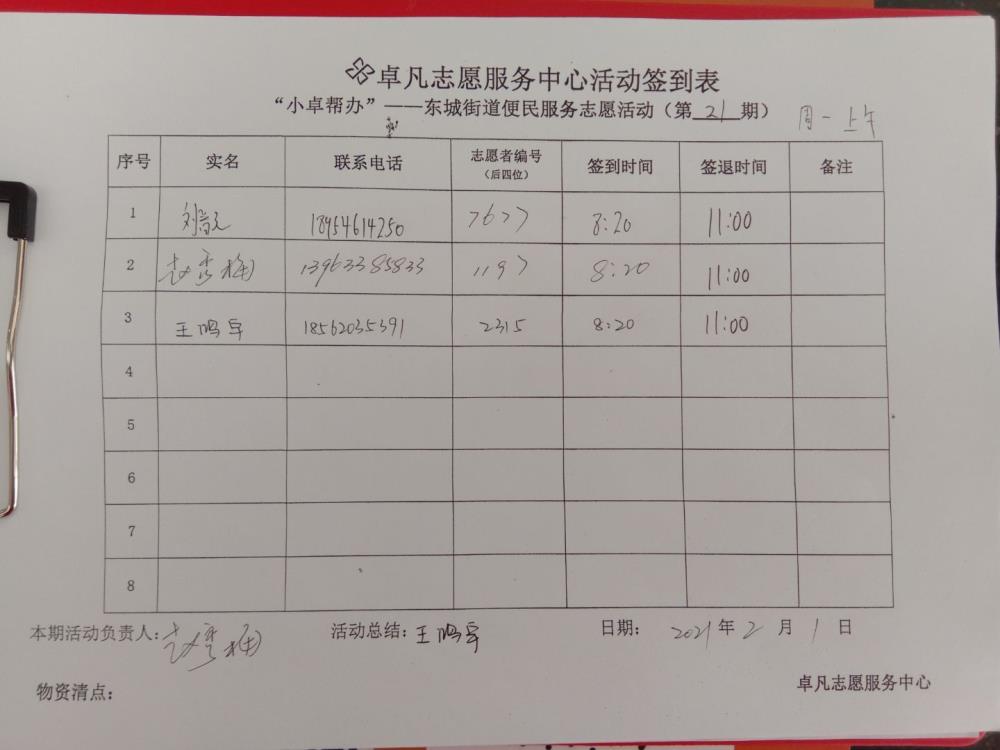 卓凡志愿服务中心活动签到表
“小卓帮办”——东城街道便民服务志愿活动（第21期）
周一上午
序号 实名 联系电话 志愿者编号（后四位） 签到时间 签退时间 备注
1 刘 18954614250 7677 8:20 11:00
2 赵秀梅 13963385833 1197 8:20 11:00
3 王鸣宇 18562035391 2315 8:20 11:00
4
5
6
7
8
本期活动负责人：赵秀梅 活动总结：王鸣宇 日期： 2021年2月1日
物资清点：
卓凡志愿服务中心